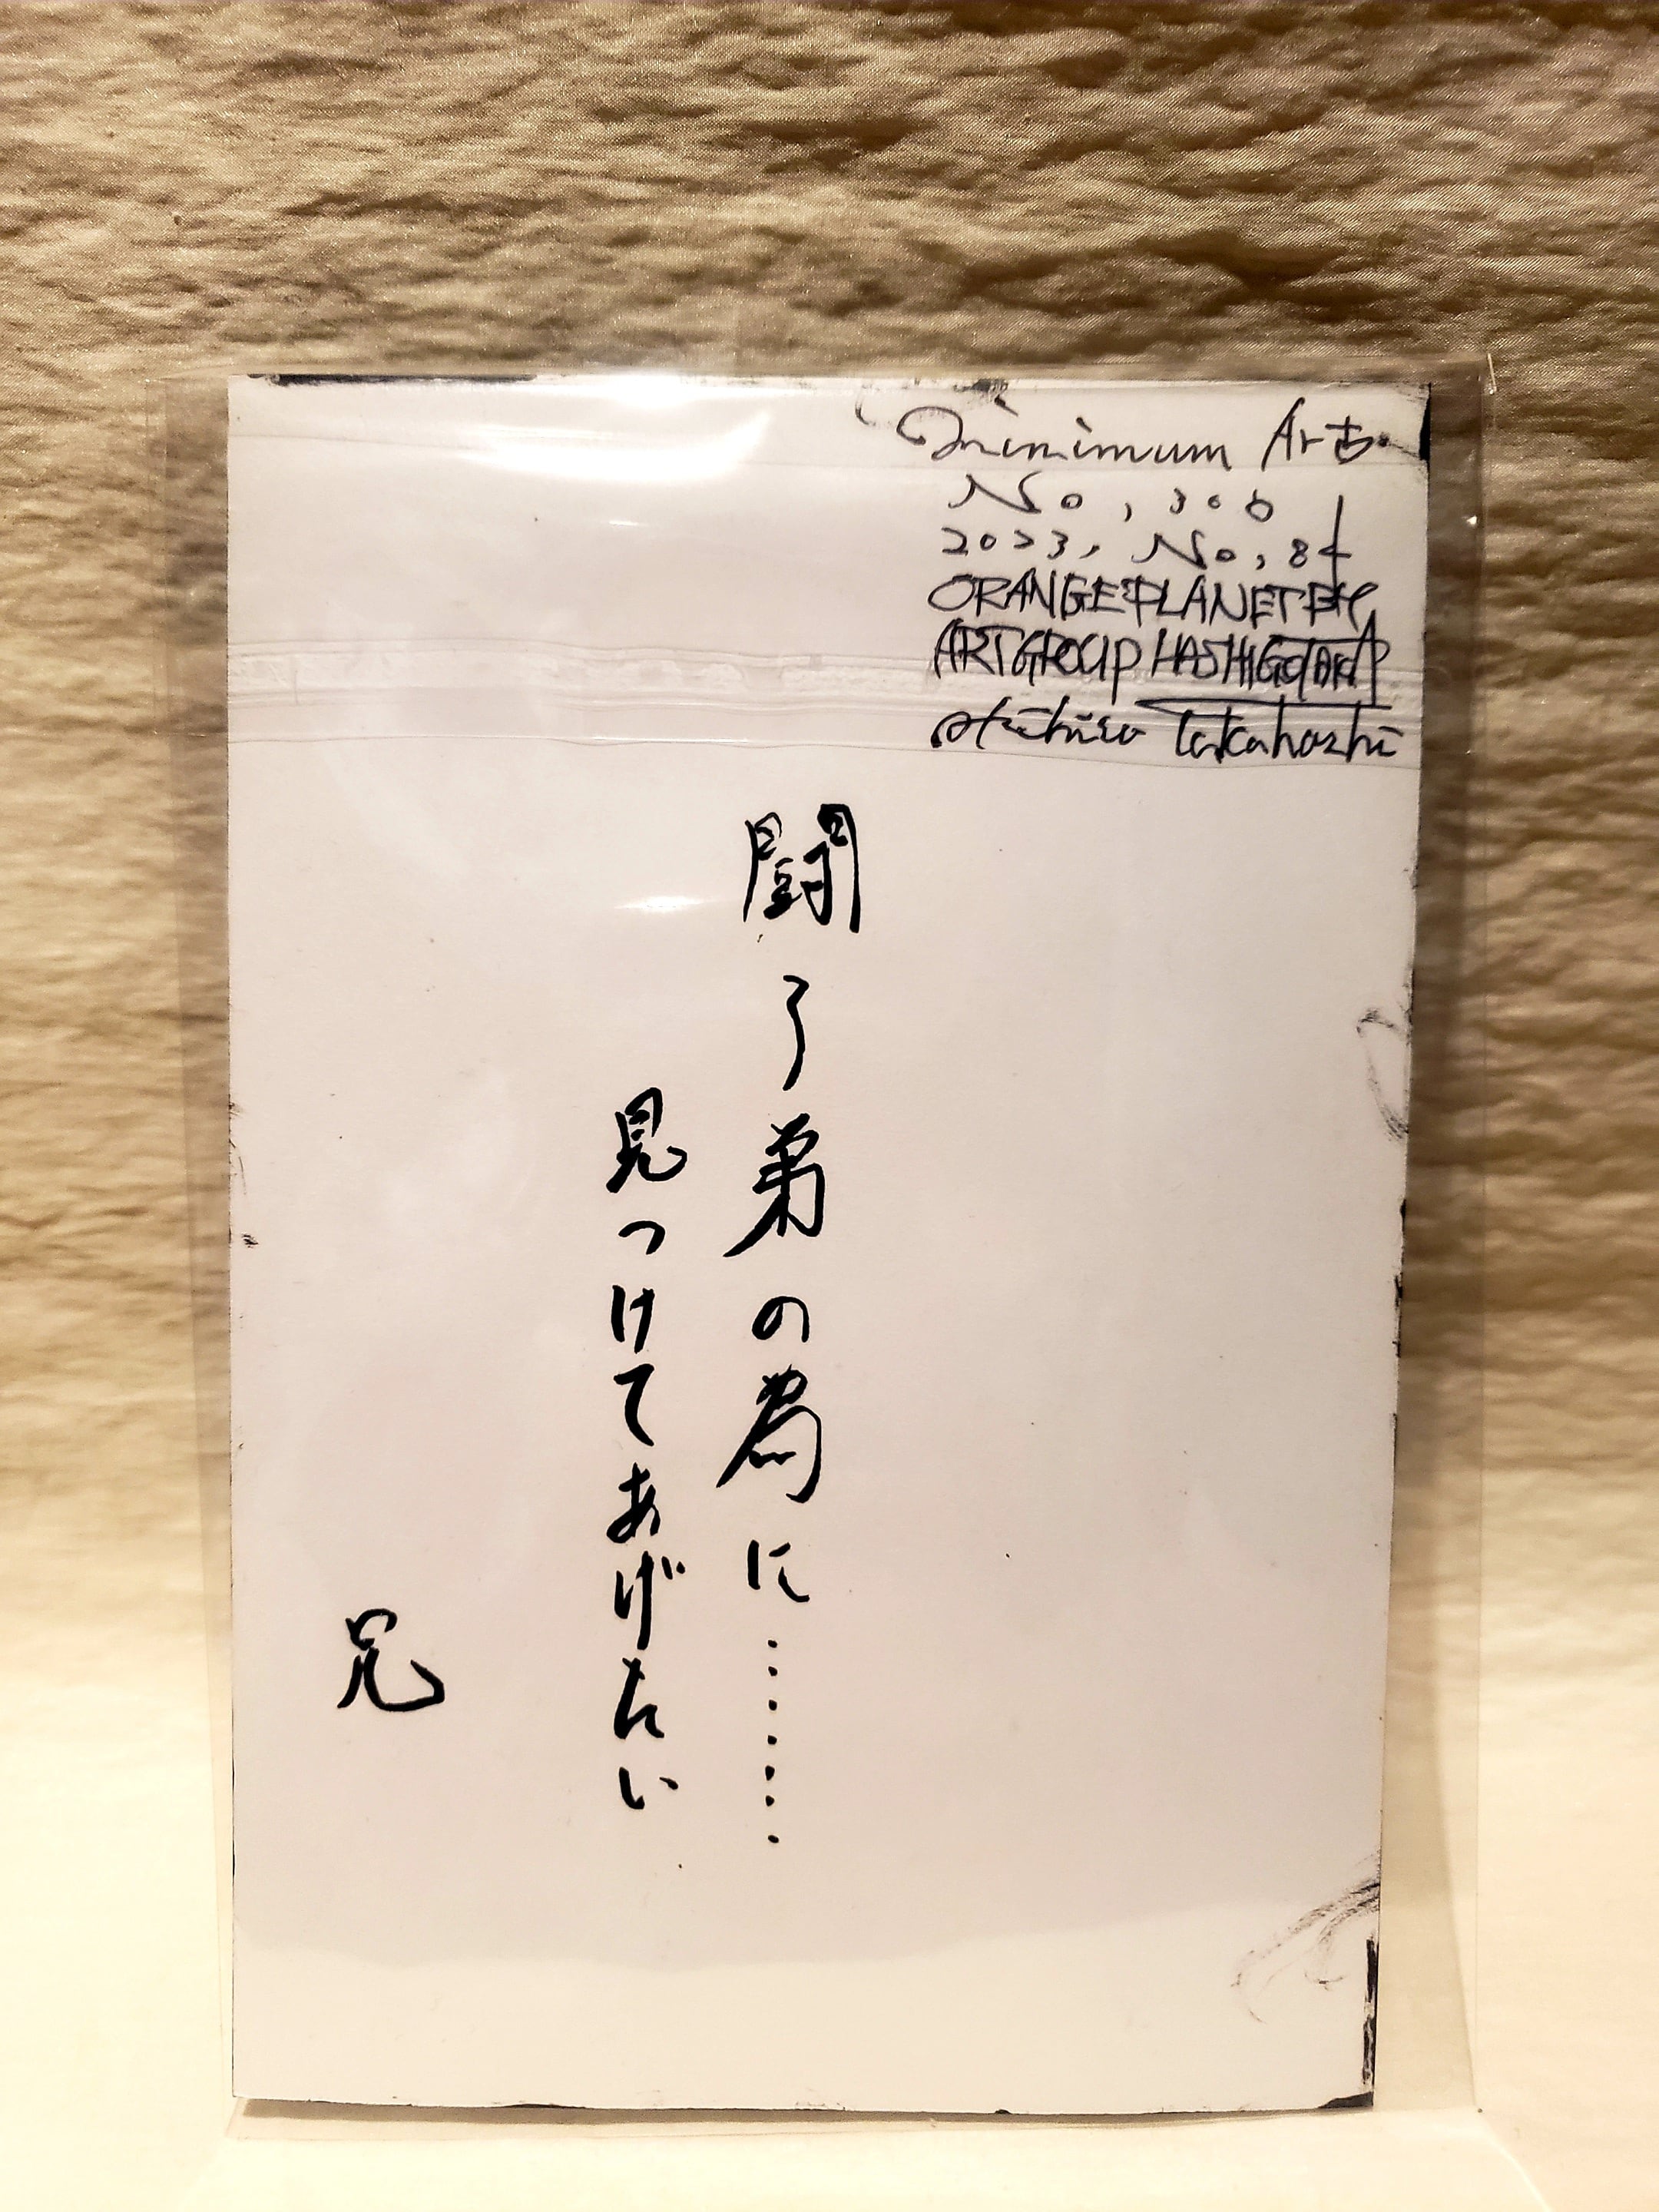 minimum Art.
No, 306
2023, No, 84
ORANGE PLANET BY
ART GROUP HASHIGOTAKA
Akihiro Takahashi
闘う弟の為に………
見つけてあげたい
兄